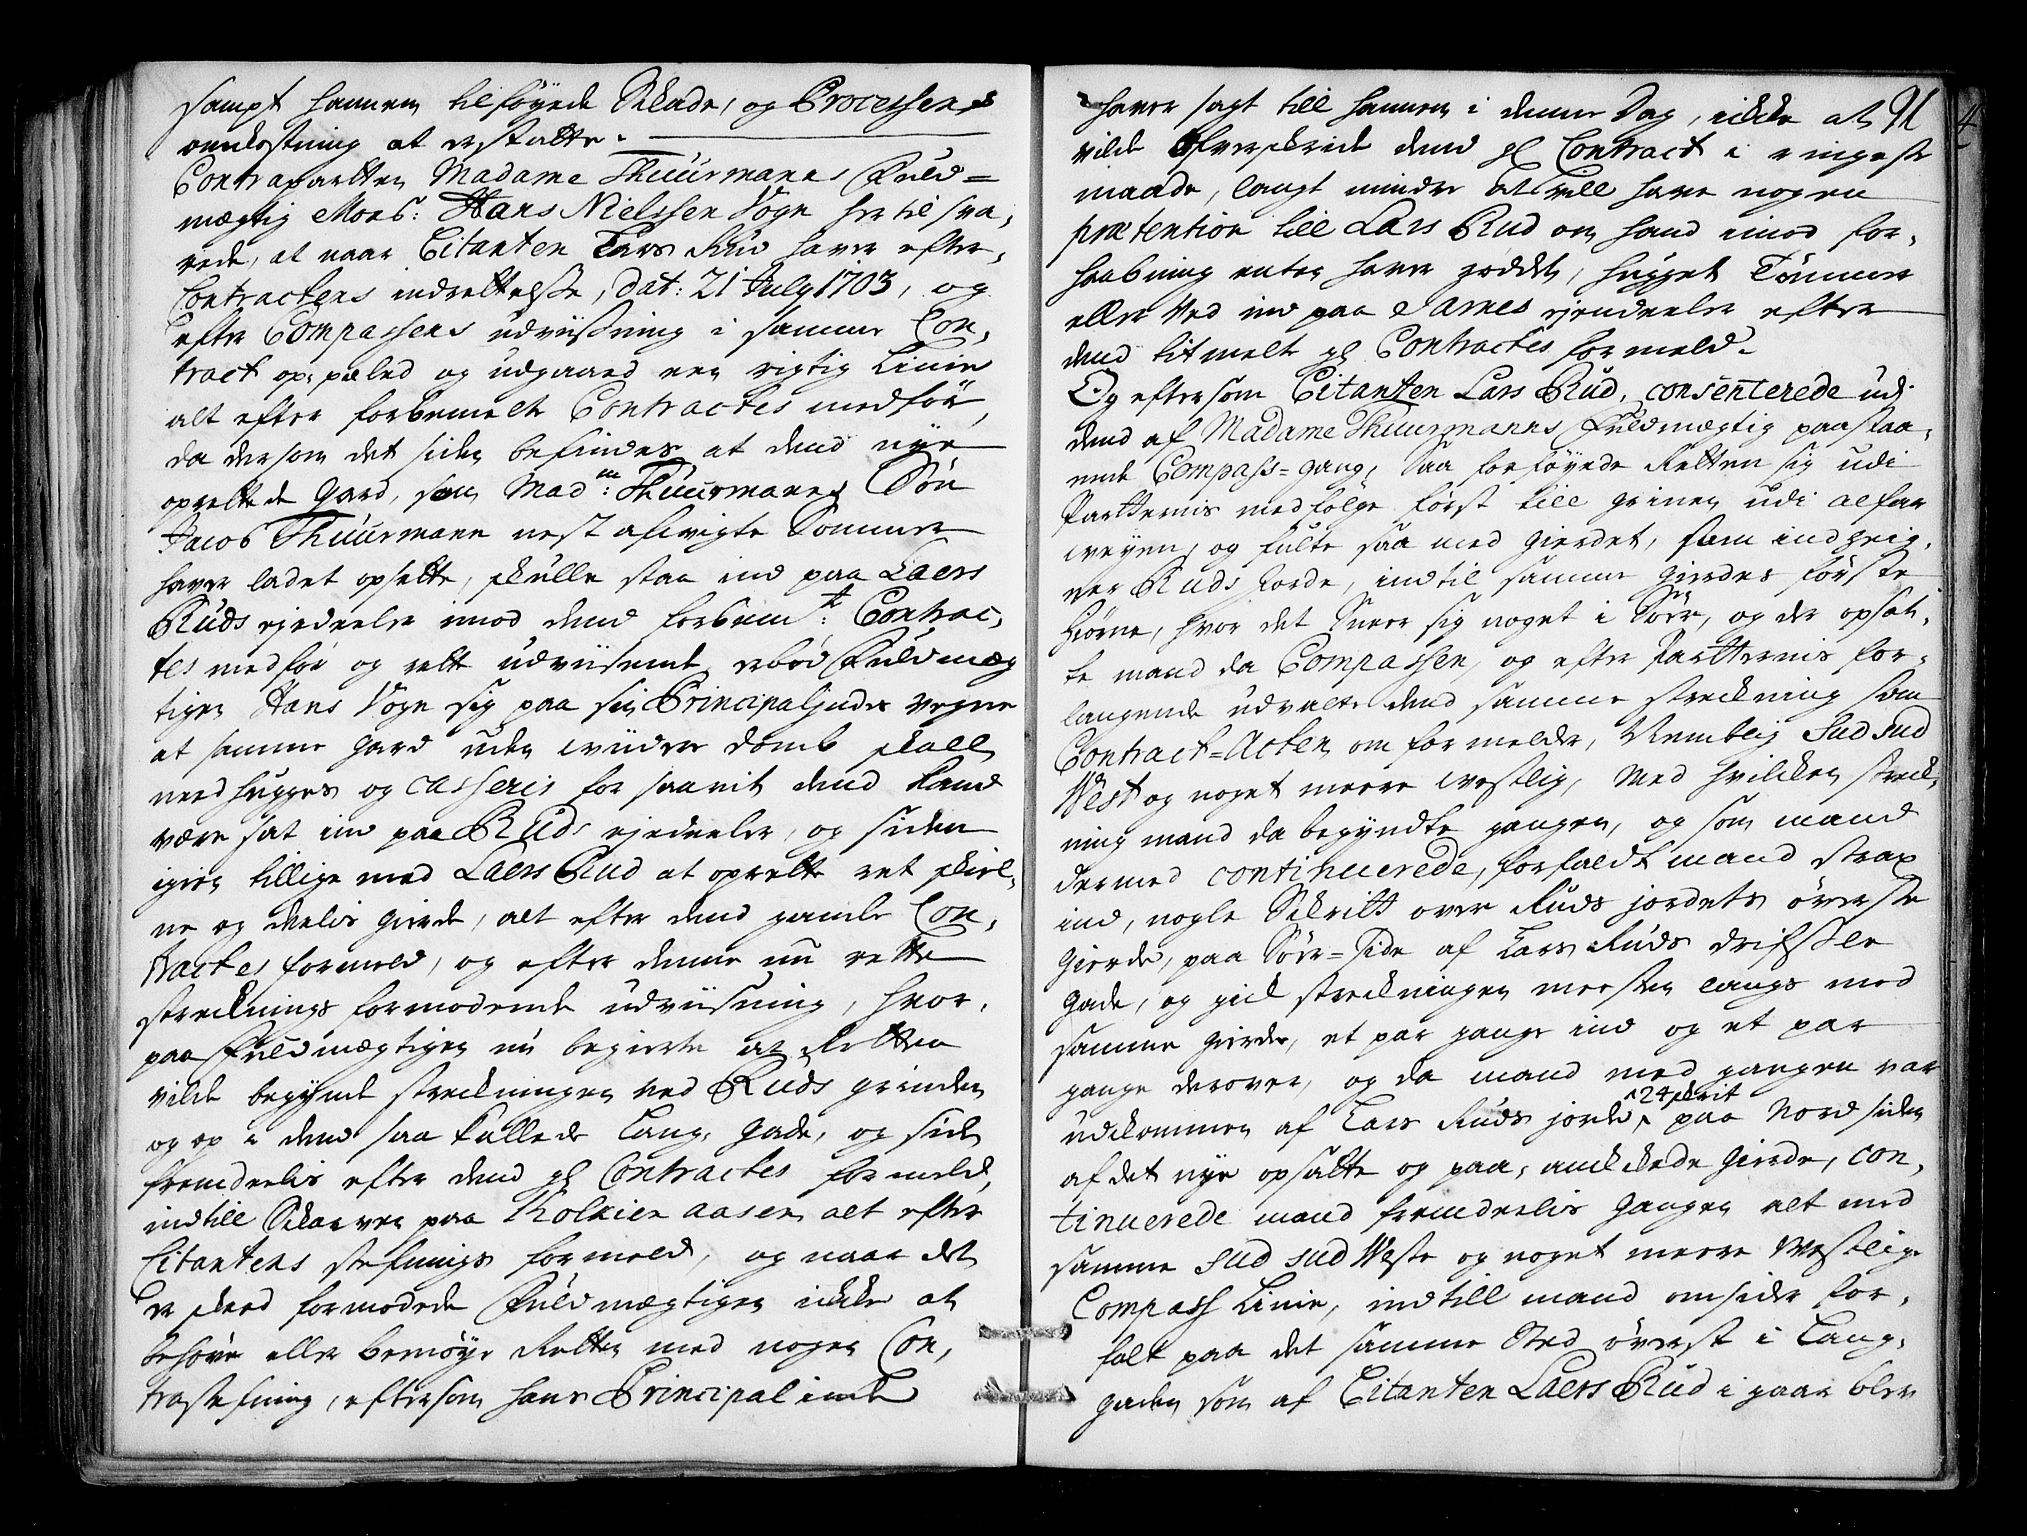 sampt hannem tilføyede Skade, og Processens
omkostning at erstatte.
Contraparttens Madame Thuurmanns Fuld=
mægtig Mons: Hans Nielssen Vogn hertil sva,
rede, at naar Citanten Lars Rud haver efter,
Contractens indrettelse, dat: 21 July 1703, og
efter Compassens udviißning i samme Con,
tract op, pæled og udgaaed een rigtig Linie
alt efter forbemelte Contractes medför,
da dersom det siden befindes at dend nye
oprettede Gard, som Mad:m Thuurmanns Sön
Jacob Thuurmann nest afvigte Sommer
haver ladet opsette, skulle staa ind paa Laers
Ruds ejedeele imod dend forbem:te Contrac,
tes medför og rett udviisende, erbød Fuldmæg
tigen Hans Vogn sig paa sin Principalindes vegne
at samme gard uden viidere domb skall
needhugges og casseris for saavit dend kand
være sat ind paa Ruds ejedeele, og siden
igien tillige med Laers Rud at oprette ret skiel,
ne og deelis gierde, alt efter dend gamle Con,
tractes formeld, og efter denne nu rette
strecknings formodende udviisning, hvor,
paa Fuldmægtigen nu begierte at Retten
vilde begynde streckningen ved Ruds grinden
og op i dend saa kallede Lang, gade, og siden
fremdeelis efter dend gl Contractes formeld,
indtill Skarven paa Kolkien aasen alt efter
Citantens stefnings formeld, og naar det
er skeed formodede Fuldmægtigen ikke at
behöve eller bemöye Retten med nogen Con,
trastefning, eftersom hans Principalinde
haver sagt till hannem i denne Dag, ikke at
vilde Ofverskride dend gl Contract i ringeste
maade, langt mindre at vill have nogen
prætention till Lars Rud om hand imod for,
haabning enten haver röddet, hugget Tömmer
eller Ved ind paa Sarnes ejendeele efter
dend titmelte gl Contractes formeld.
Og eftersom Citanten Lars Rud, consenterede udi
dend af Madame Thuurmanns Fuldmægtig paastaa,
ende Compass=gang, Saa forföyede Retten sig udi
Partternis medfölge först till grinen udi alfar
weyen, og fulte saa med gierdet, som indheig,
ner Ruds Jorde, indtil samme gierdes förste
hiörne, hvor det Sneer sig noget i Sör, og der opsat,
te mand da Compassen, og efter Partternis for,
langende udvalte dend samme streckning som
Contract=Acten om formelder, Nemblig Sud Sud
West og noget meere westlig, Med hvilcken streck,
ning mand da begyndte gangen, og som mand
dermed continuerede, forfaldt mand strax
ind, nogle Skritt over Ruds jordets överste
gierde, paa Sör=side af Lars Ruds drifftle
gade, og gick streckningen meesten langs med
samme gierde, et par gange ind og et par
gange derover, og da mand med gangen var
udkommen af Lars Ruds jorde, ^24 skrit paa Nord siden
af det nye opsatte og paa, anckede gierde, con,
tinuerede mand fremdeelis gangen alt med
samme Sud Sud West og noget meere Westlige
Compass Linie, indtill mand omsider for,
falt paa det samme Sted överst i Lang,
gaden som af Citanten Laers Rud i gaar blev